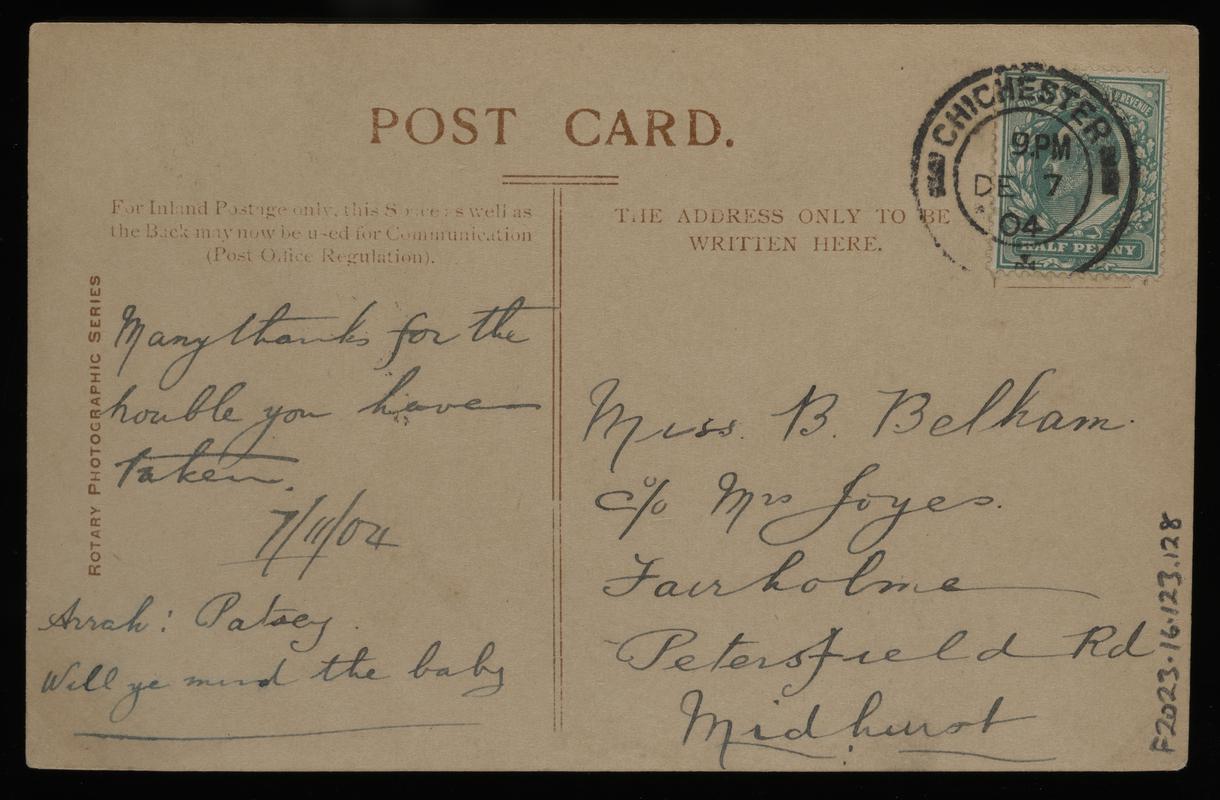 POST CARD.
For Inland Postage only, this Space as well as
the Back may now be used for Communication
(Post Office Regulation).
THE ADDRESS ONLY TO BE
WRITTEN HERE.
CHICHESTER
9. PM
DE 7
04
REVENUE
HALF PENNY
ROTARY PHOTOGRAPHIC SERIES
Many thanks for the
trouble you have
taken.
7/11/04
Arrah: Patsey.
Will ye mind the baby
Miss. B. Belham.
c/o Mrs Joyes.
Fairholme
Petersfield Rd
Midhurst
F2023.16.123.128